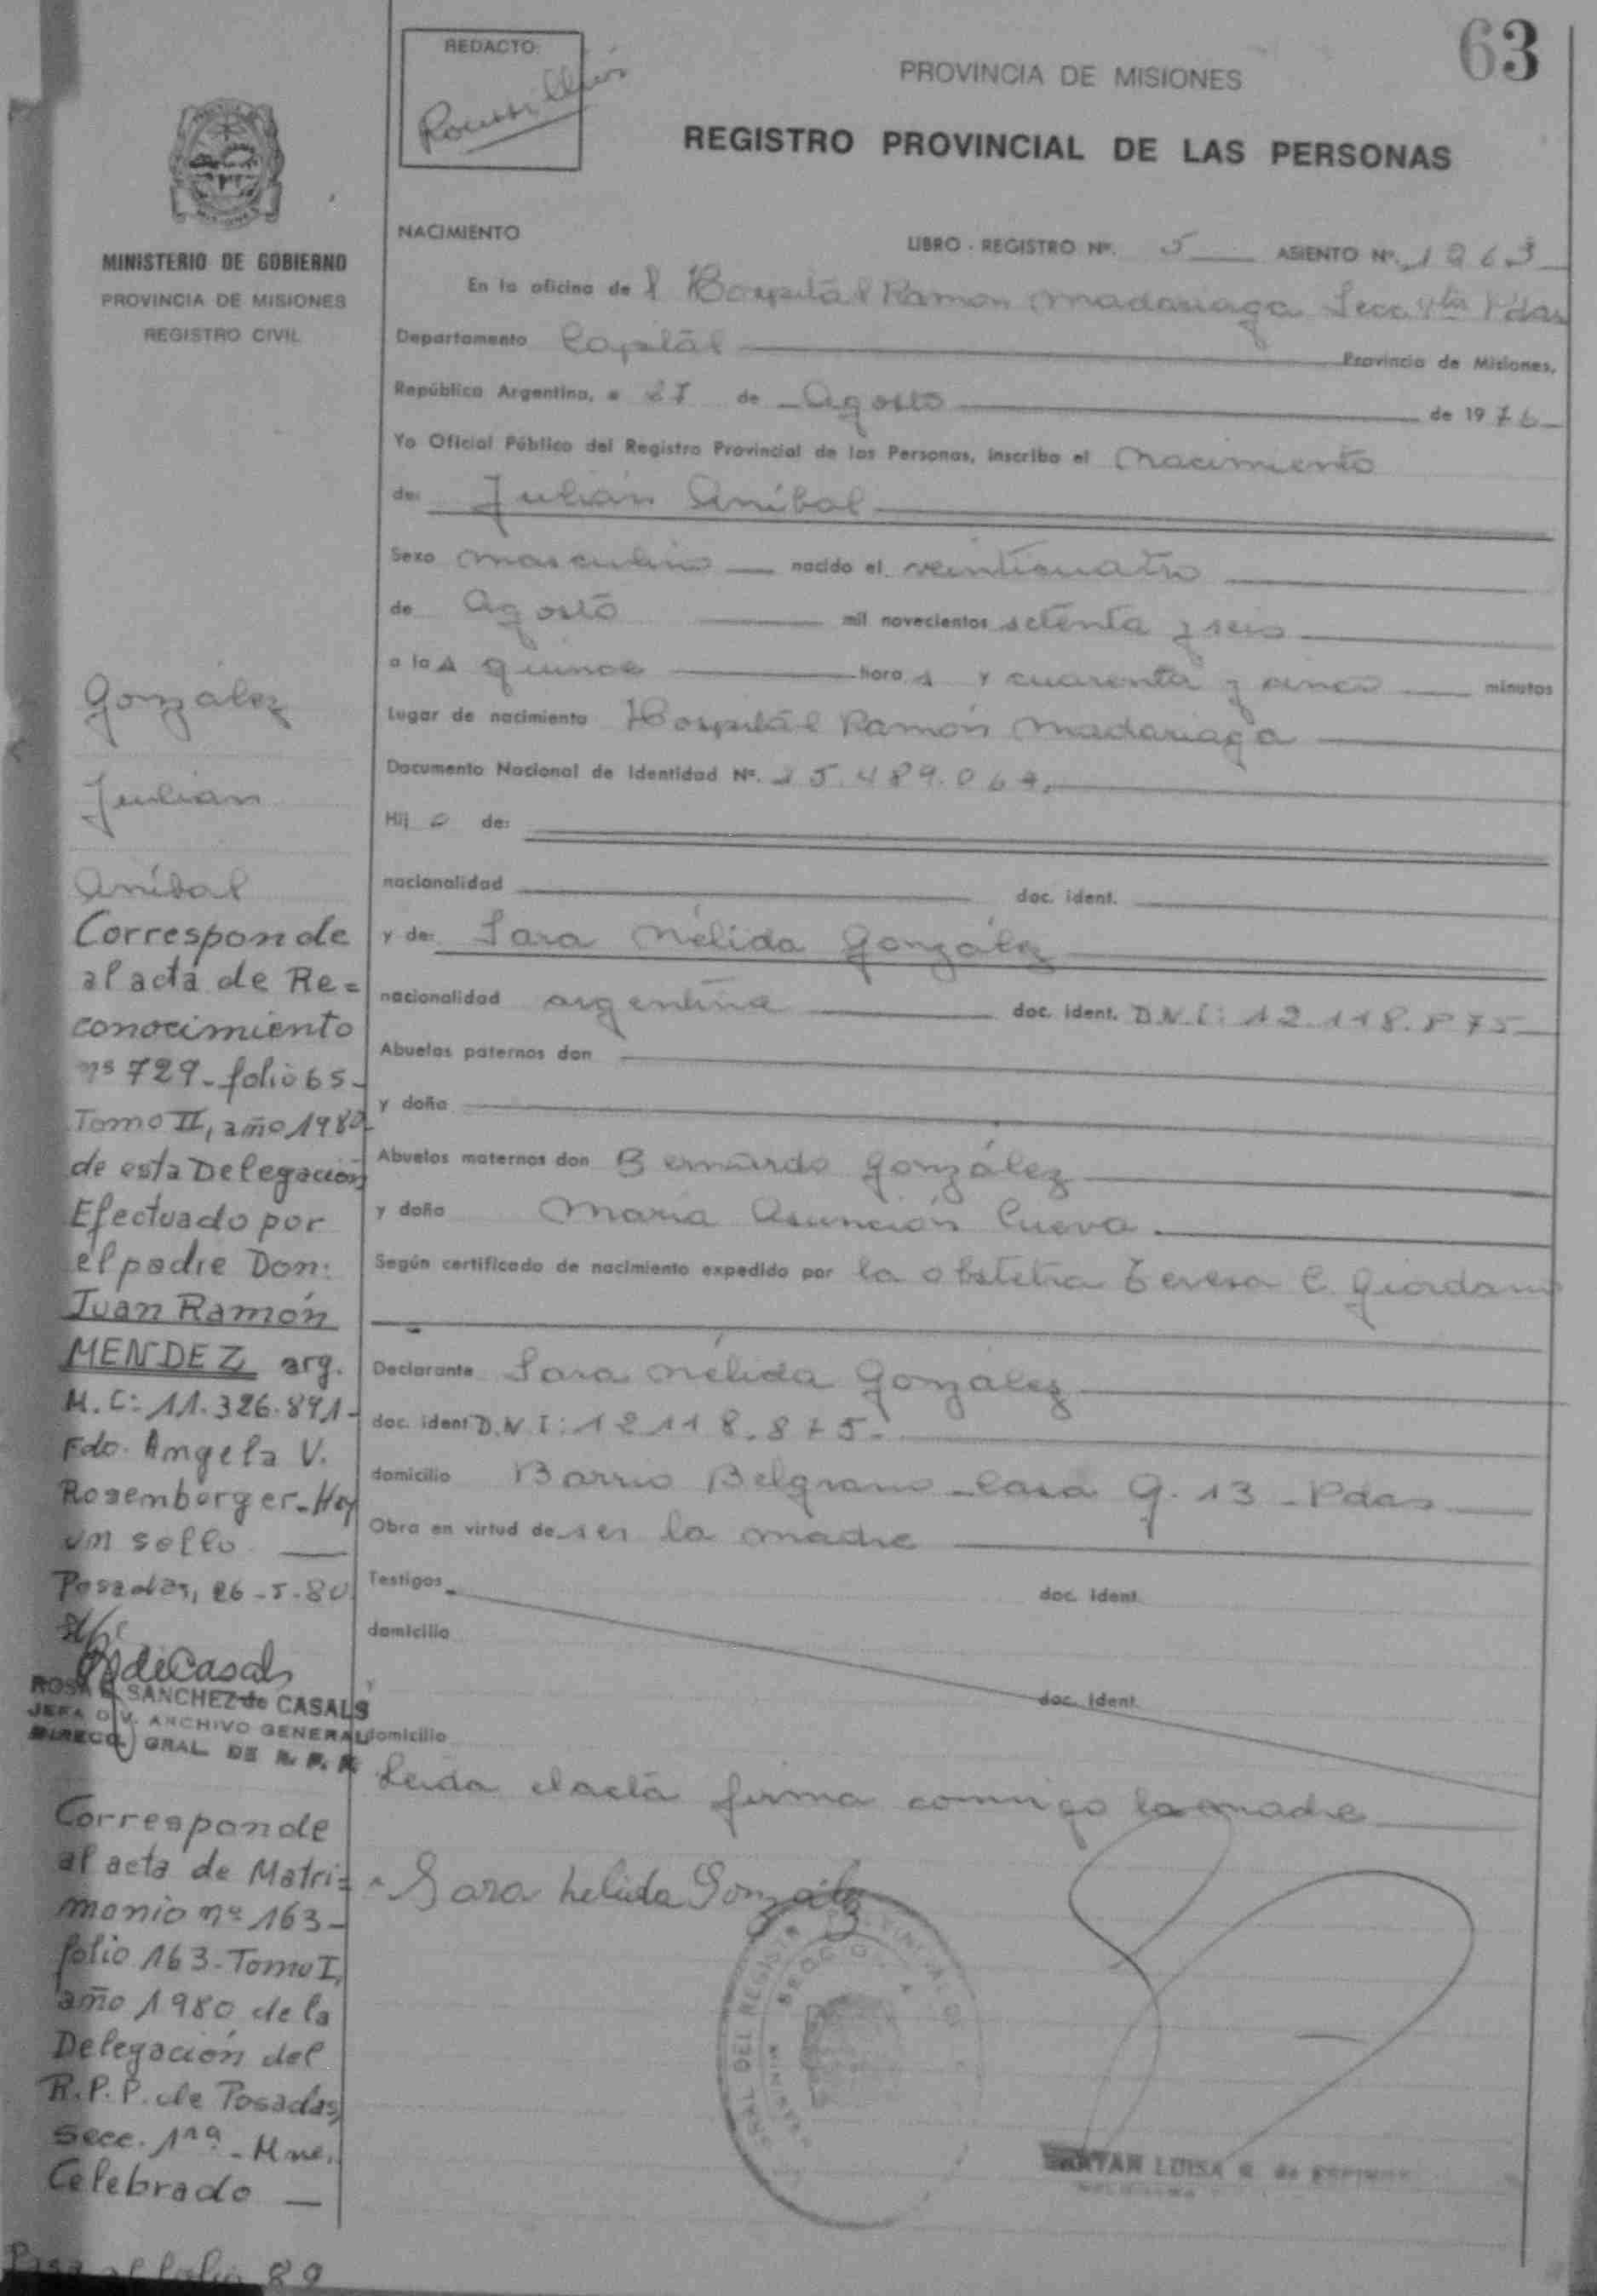 63
REDACTO:
PROVINCIA DE MISIONES
REGISTRO PROVINCIAL DE LAS PERSONAS
MISIONES
MINISTERIO DE GOBIERNO
PROVINCIA DE MISIONES
REGISTRO CIVIL
González
Julián
Aníbal
Corresponde
al acta de Re=
conocimiento
nº 729-folio 65-
Tomo II, año 1980
de esta Delegación
Efectuado por
el padre Don:
Juan Ramón
MENDEZ arg.
M.C: 11.326.891-
Fdo. Angela V.
Rosemberger-Hay
un sello
Posadas, 26-5-80
ROSA SANCHEZ de CASALS
JEFA DIV. ARCHIVO GENERAL
DIRECC. GRAL. DE R. P. P.
Corresponde
al acta de Matri=
monio nº 163-
folio 163-Tomo I,
año 1980 de la
Delegación del
R.P.P. de Posadas,
Secc. 1ra - Mnes.
Celebrado —
Pasa al folio 89
NACIMIENTO
LIBRO - REGISTRO Nº. 5 ASIENTO Nº. 1263
En la oficina de l Hospital Ramón Madariaga Secc. 4ta Pdas
Departamento Capital Provincia de Misiones,
República Argentina, a 27 de Agosto de 1976
Yo Oficial Público del Registro Provincial de las Personas, inscribo el Nacimiento
de: Julián Aníbal
Sexo masculino nacido el veinticuatro
de Agosto mil novecientos setenta y seis
a las quince horas y cuarenta y cinco minutos
Lugar de nacimiento Hospital Ramón Madariaga
Documento Nacional de Identidad Nº. 25.489.064.
Hijo de:
nacionalidad doc. ident.
y de: Sara Nélida González
nacionalidad argentina doc. ident. D.N.I: 12.118.875
Abuelos paternos don
y doña
Abuelos maternos don Bernardo González
y doña María Asunción Cueva
Según certificado de nacimiento expedido por la obstetra Teresa C. Giordano
Declarante Sara Nélida González
doc. ident D.N.I: 12.118.875.
domicilio Barrio Belgrano - casa G. 13 - Pdas
Obra en virtud de ser la madre
Testigos doc. ident.
domicilio
y doc. ident.
domicilio
Leida el acta firma conmigo la madre
Sara Nelida González
LUISA